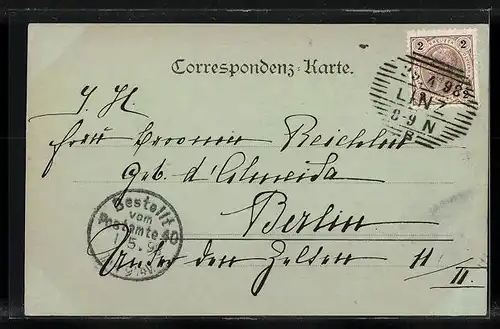 2 2
Correspondenz-Karte.
29.4.98
LINZ
8-9 N
B
I. H.
Frau Baronin Reichlin
geb. d'Almeida
Berlin
Unter den Zelten 11
II.
Bestellt
vom
Postamte 40
1/5.9